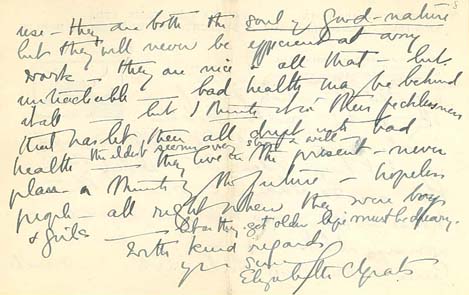 use – they are both the soul of good-nature
but they will never be efficient at any
work – they are nice & all that – but
unteachable – bad health may be behind
it all – but I think it is their fecklessness
that has let them all drift into bad
health – the eldest seems very
they live in the present – never
plan or think of the future – hopeless
people – all right when they were boys
& girls – but as they get older life must be dreary.
with kind regards
yrs
Elizabeth